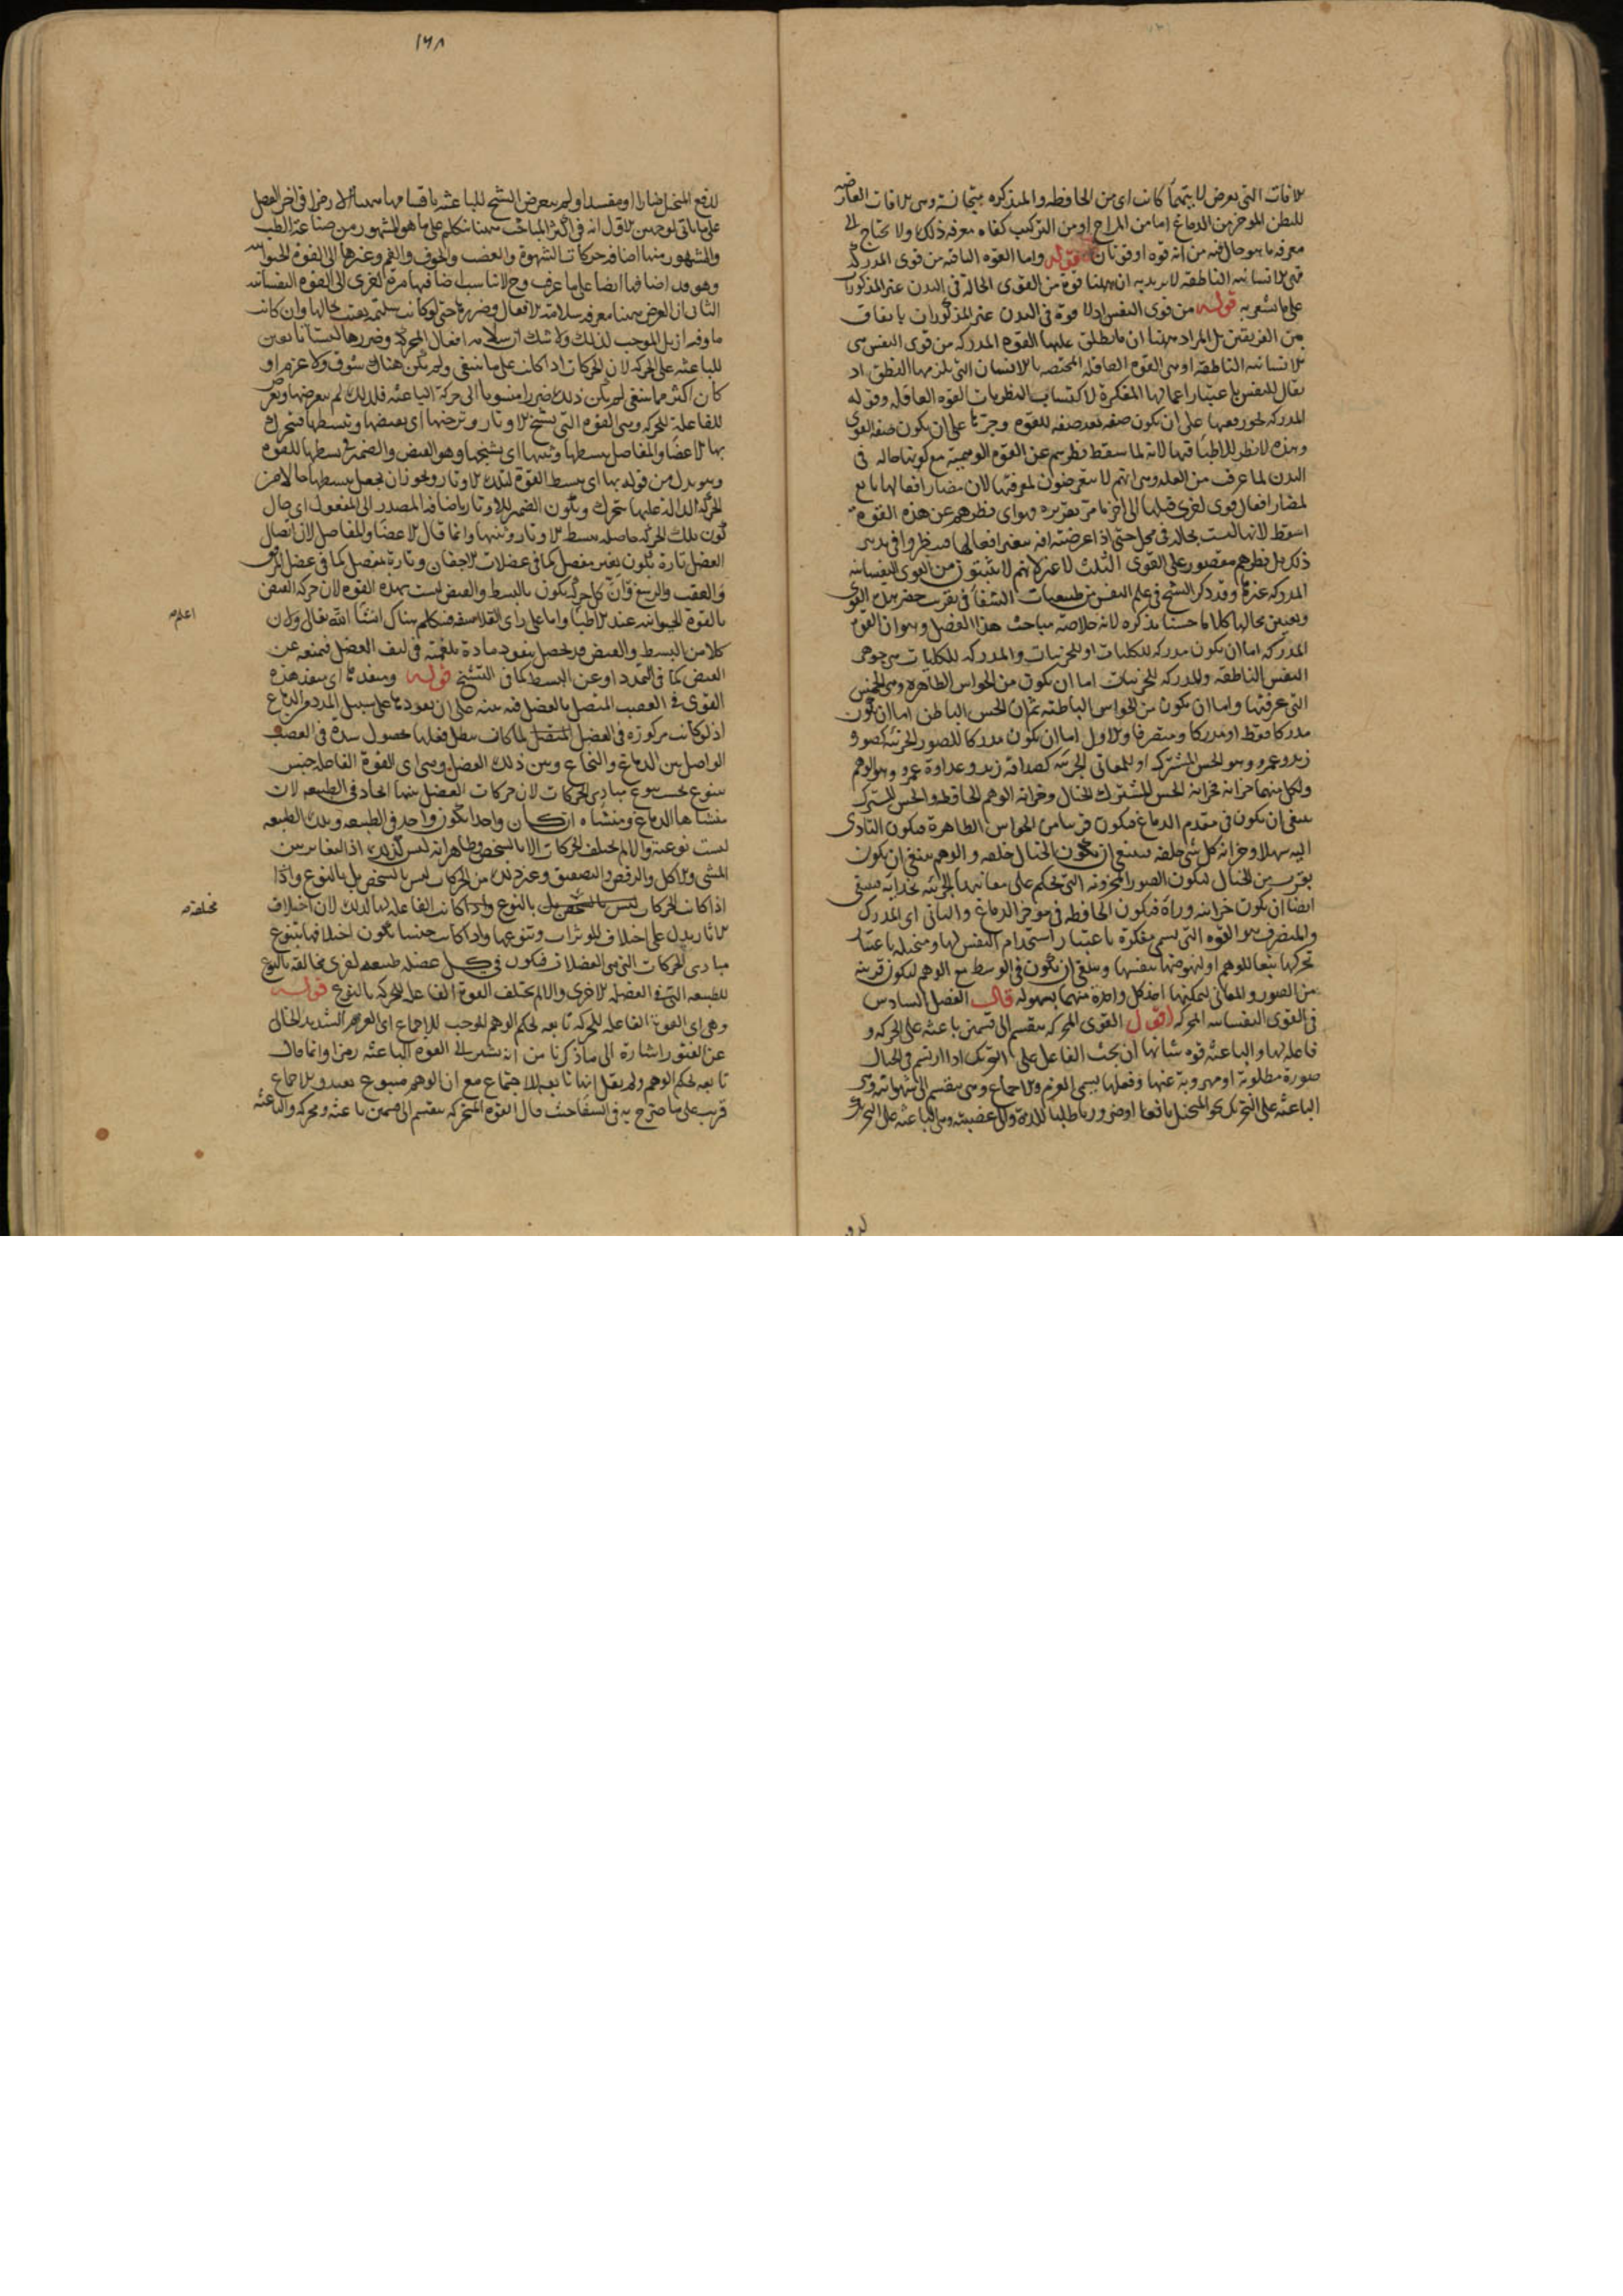 الافات التي تعرض لايتهما كانت اى من الحافظه والمتذكره متجانسة وهى الافات العارضه
للبطن الموخر من الدماغ اما من المزاج او من التركيب كفاه معرفه ذلك ولا يحتاج الى
معرفه ما هو حال فيه من انه قوه او قوتان قوله واما القوه الباقيه من قوى المدركه
فهى الانسانيه الناطقه لا يريد به ان ههنا قوة من القوى الحالة فى البدن غير المذكورات
على ما يشعر به قوله من قوى النفس اذ لا قوة فى البدن غير المذكورات باتفاق
من الفريقين بل المراد ههنا ان ما يطلق عليها القوه المدركه من قوى النفس هى
الانسانيه الناطقه او هى القوه العاقله المختصه بالانسان التى يلزمها النطق اذ
يقال للنفس باعتبار اعمالها المفكرة لاكتساب النظريات القوه العاقله وقوله
المدركه يجوز رفعها على ان يكون صفه بعد صفه للقوه وجرها على ان يكون صفه القوى
وهذه لا نظر للاطباء فيها لانه لما سقط نظرهم عن القوه الوهمية مع كونها حاله فى
البدن لما عرف من العله وهى انهم لا يتعرضون لمعرفتها لان مضار افعالها تابع
لمضار افعال قوى اخرى قبلها الى اخر ما مر تقريره فهو اى نظرهم عن هذه القوه
اسقط لانها ليست بحالة فى محل حتى اذا عرضت افه بتغير افعالها فينظروا فى تدبير
ذلك بل نظرهم مقصور على القوى الثلث لا غير لانهم لا يثبتون من القوى النفسانيه
المدركه غيرها وقد ذكر الشيخ فى علم النفس من طبيعيات الشفا فى تقريب حصر هذه القوى
وتعيين محالها كلاما حسنا نذكره لانه خلاصة مباحث هذا الفصل وهو ان القوه
المدركه اما ان يكون مدركه للكليات او للجزئيات والمدركه للكليات هى جوهر
النفس الناطقه والمدركه للجزئيات اما ان يكون من الحواس الظاهره وهى الخمس
التى عرفتها واما ان يكون من الحواس الباطنه ثم ان الحس الباطن اما ان يكون
مدركا فقط او مدركا ومتصرفا والاول اما ان يكون مدركا للصور الجزئيه كصورة
زيد وعمرو وهو الحس المشترك او للمعانى الجزئيه كصداقه زيد وعداوة عمرو وهو الوهم
ولكل منهما خزانه فخزانة الحس المشترك الخيال وخزانه الوهم الحافظه والحس المشترك
ينبغى ان يكون فى مقدم الدماغ فيكون قريبا من الحواس الظاهرة فيكون التادى
اليه سهلا وخزانه كل شى خلفه فينبغى ان يكون الخيال خلفه والوهم ينبغى ان يكون
بقرب من الخيال ليكون الصور المخزونه التى يحكم على معانيها الجزئيه بحذائه فينبغى
ايضا ان يكون خزانته وراه فيكون الحافظه فى موخر الدماغ والثانى اى المدرك
والمتصرف هو القوه التى تسمى مفكرة باعتبار استخدام النفس لها ومتخيله باعتبار
تحركها تبعا للوهم او لنهوضها بنفسها وينبغى ان يكون فى الوسط مع الوهم ليكون قريبه
من الصور والمعانى لتمكنها اخذ كل واحدة منهما بسهوله قال الفصل السادس
فى القوى النفسانيه المحركه اقول القوى المحركه ينقسم الى قسمين باعثه على الحركه و
فاعله لها والباعثه قوه شانها ان يبعث الفاعل على التحريك اذا ارتسم فى الخيال
صورة مطلوبة او مهروبة عنها وفعلها يسمى العزم والاجماع وهى ينقسم الى شهوانيه وهى
الباعثه على التحريك نحو المتخيل نافعا او ضروريا طلبا للذة والى غضبيه وهى الباعثه على التحريك
١٦٨
لدفع المتخيل ضارا او مفسدا ولم يتعرض الشيخ للباعثه باقسامها ههنا الا رمزا فى اخر الفصل
على ما ياتى لوجهين الاول انه فى اكثر المباحث ههنا يتكلم على ما هو المشهور من صناعة الطب
والمشهور منها اضافه حركات الشهوة والغضب والخوف والغم وغيرها الى القوه الحيوانيه
وهو قد اضافها ايضا على ما عرف وح لا يناسب اضافتها مرة اخرى الى القوه النفسانيه
الثانى ان الغرض ههنا معرفه سلامته الافعال وضررها حتى لو كانت سليمة بقيت بحالها وان كانت
ماوفه ازيل الموجب لذلك ولا شك ان سلامه افعال المحركة وضررها ليستا تابعين
للباعثه على الحركه لان الحركات اذا كانت على ما ينبغى ولم يكن هناك شوق ولا عزم او
كان اكثر مما ينبغى لم يكن ذلك ضررا منسوبا الى حركه الباعثه فلذلك لم يتعرضها وتعرض
للفاعلة للحركه وهى القوه التى تشنج الاوتار وترخيها اى يقبضها ويبسطها فيحرك
بها الاعضا والمفاصل يبسطها ويثنيها اى يشنجها وهو القبض والضمير فى يبسطها للقوه
وهو بدل من قوله بها اى يبسط القوه لتلك الاوتار ويجوز ان يجعل يبسطها حالا من
الحركة الداله عليها يتحرك ويكون الضمير للاوتار باضافه المصدر الى المفعول اى حال
كون تلك الحركه حاصله ببسط الاوتار وثنيها وانما قال الاعضا والمفاصل لان اتصال
العضل تارة يكون بغير مفصل كما فى عضلات الاجفان وتارة بمفصل كما فى عضل المرفق
والعقب والرسغ وان كل حركه يكون بالبسط والقبض ليست بهذه القوه لان حركه النبض
بالقوة الحيوانيه عند الاطبا واما على راى الفلاسفه فنتكلم هناك ان شا الله تعالى ولان
اعلم
كلا من البسط والقبض قد يحصل بنفوذ مادة بلغمية فى ليف العضل فيمنعه عن
القبض كما فى التمدد او عن البسط كما فى التشنج قوله ومنفذها اى منفذ هذه
القوى فى العصب المتصل بالعضل فيه تنبيه على ان نفوذها على سبيل المدد من الدماغ
اذ لو كانت مركوزه فى العضل لما كان يبطل فعلها بحصول سدة فى العصب
الواصل بين الدماغ والنخاع وبين ذلك العضل وهى اى القوة الفاعله جنس
يتنوع بحسب تنوع مبادى الحركات لان حركات العضل بينها اتحاد فى الطبيعه لان
منشاها الدماغ ومنشاه ان كان واحدا يكون واحد فى الطبيعه وتلك الطبيعه
ليست نوعية والا لم يختلف الحركات الا بالشخص وظاهر انه ليس كذلك اذ التغاير بين
المشى والاكل والرقص والتصفيق وغير ذلك من الحركات ليس بالشخص بل بالنوع واذا
اذا كانت الحركات ليس بالشخص بل بالنوع واذا كانت الفاعله لها كذلك لان اختلاف
مختلفه
الاثار يدل على اختلاف الموثرات وتنوعها واذا كانت جنسا يكون اختلافها بتنوع
مبادى الحركات التى هى العضلات فيكون فى كل عضله طبيعه اخرى مخالفه بالنوع
للطبيعه التى فى العضله الاخرى والا لم يختلف القوة الفاعله للحركه بالنوع قوله
وهى اى القوه الفاعله للحركه تابعه لحكم الوهم الموجب للاجماع اى العزم الشديد الخالى
عن الفتور اشارة الى ما ذكرنا من انه يشير الى القوه الباعثه رمزا وانما قال
تابعه لحكم الوهم ولم يقل انها تابعه للاجتماع مع ان الوهم متبوع بعيد والاجماع
قريب على ما صرح به فى الشفا حيث قال القوه المتحركه ينقسم الى قسمين باعثه ومحركه والباعثه